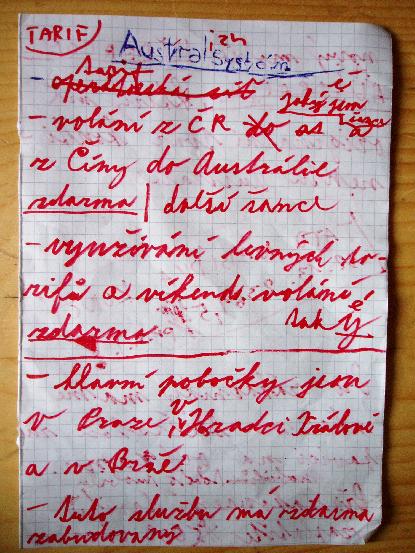 TARIF
Australsystém
izh
- operátorská síť
- volání z ČR do as
z Číny do Austrálie
zdarma | další šance
- využívání levných ta-
rifů a víkend. volání
zdarma tak
- hlavní pobočky jsou
v Praze, v Hradci Králové
a v Brně
- tuto službu má zdarma
zabudovaný